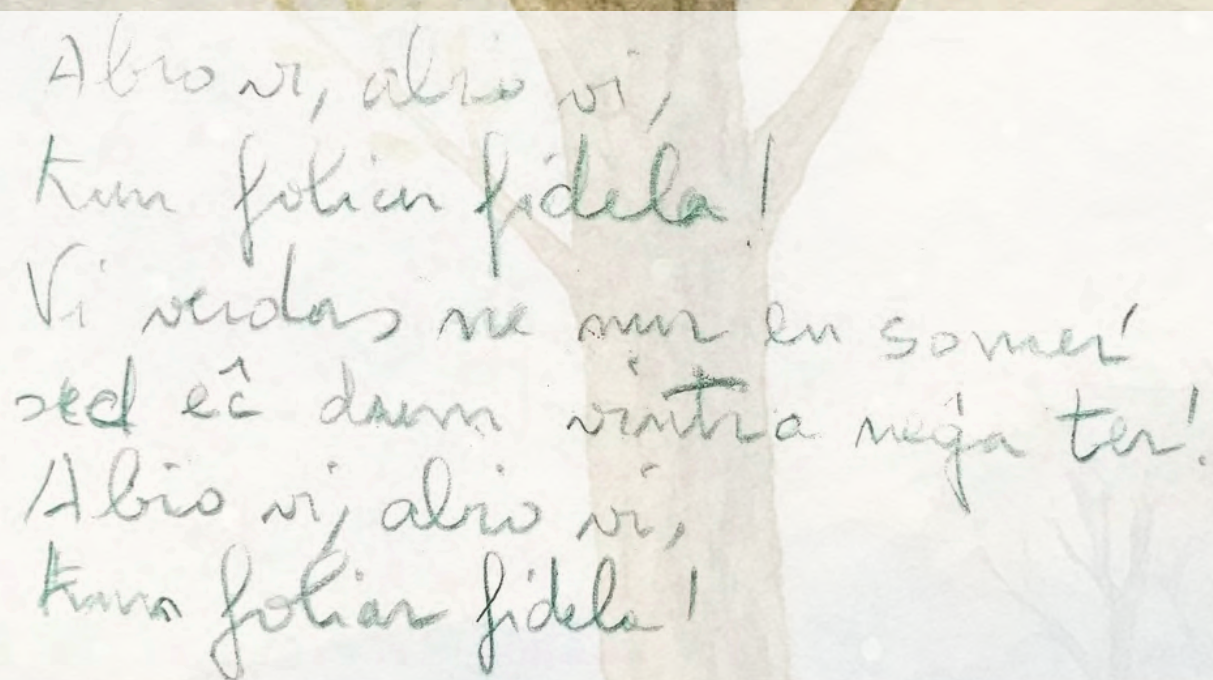 Abio vi, abio vi,
kun foliar fidela!
Vi verdas ne nur en somer'
sed eĉ dum vintra neĝa ter'.
Abio vi, abio vi,
kun foliar fidela!